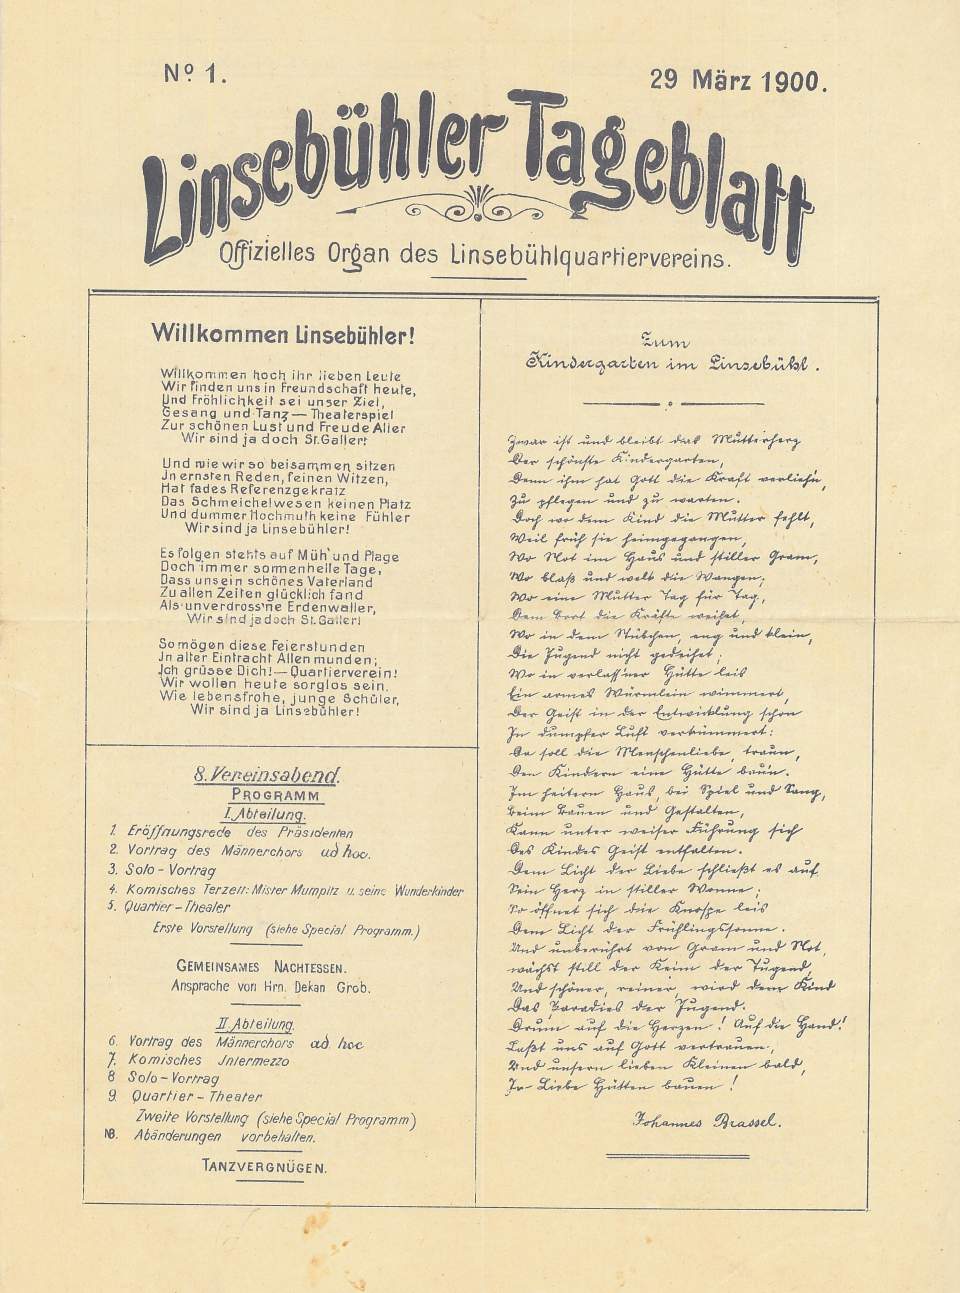 Nº 1.
29 März 1900.
Linsebühler Tageblatt
Offizielles Organ des Linsebühlquartiervereins.
Willkommen Linsebühler!
Willkommen hoch ihr lieben Leute
Wir finden uns in Freundschaft heute,
Und Fröhlichkeit sei unser Ziel,
Gesang und Tanz — Theaterspiel
Zur schönen Lust und Freude Aller
Wir sind ja doch St. Galler!
Und wie wir so beisammen sitzen
Jn ernsten Reden, feinen Witzen,
Hat fades Referenzgekratz
Das Schmeichelwesen keinen Platz
Und dummer Hochmuth keine Fühler
Wir sind ja Linsebühler!
Es folgen stehts auf Müh' und Plage
Doch immer sonnenhelle Tage,
Dass unsein schönes Vaterland
Zu allen Zeiten glücklich fand
Als unverdross'ne Erdenwaller,
Wir sind ja doch St. Galler!
So mögen diese Feierstunden
Jn alter Eintracht Allen munden;
Jch grüsse Dich! — Quartierverein!
Wir wollen heute sorglos sein.
Wie lebensfrohe, junge Schüler,
Wir sind ja Linsebühler!
8. Vereinsabend.
PROGRAMM
I. Abteilung.
1. Eröffnungsrede des Präsidenten
2. Vortrag des Männerchors ad hoc.
3. Solo - Vortrag
4. Komisches Terzett: Mister Mumpitz u. seine Wunderkinder
5. Quartier - Theater
Erste Vorstellung (siehe Special Programm.)
GEMEINSAMES NACHTESSEN.
Ansprache von Hrn. Dekan Grob.
II. Abteilung.
6. Vortrag des Männerchors ad hoc
7. Komisches Jntermezzo
8 Solo - Vortrag
9. Quartier - Theater
Zweite Vorstellung (siehe Special Programm)
NB. Abänderungen vorbehalten.
TANZVERGNÜGEN.
Zum
Kindergarten im Linsebühl.
Zwar ist und bleibt das Mutterherz
Der schönste Kindergarten,
Denn ihm hat Gott die Kraft verlieh'n,
Zu pflegen und zu warten.
Doch wo dem Kind die Mutter fehlt,
Weil früh sie heimgegangen,
Wo Not im Haus und stiller Gram,
Wo blaß und welk die Wangen;
Wo eine Mutter Tag für Tag,
Dem Brot die Kräfte weihet,
Wo in dem Stübchen, eng und klein,
Die Jugend nicht gedeihet;
Wo in verlass'ner Hütte leis
Ein armes Würmlein wimmert,
Der Geist in der Entwicklung schon
In dumpfer Luft verkümmert:
Da soll die Menschenliebe, traun,
Den Kindern eine Hütte bau'n.
Im heitern Haus, bei Spiel und Sang,
Beim Bauen und Gestalten,
Kann unter weiser Führung sich
Des Kindes Geist entfalten.
Dem Licht der Liebe schließt es auf
Sein Herz in stiller Wonne;
So öffnet sich die Knospe leis
Dem Licht der Frühlingssonne.
Und unberührt von Gram und Not,
Wächst still der Keim der Tugend,
Und schöner, reiner, wird dem Kind
Das Paradies der Jugend.
Drum auf die Herzen! Auf die Hand!
Laßt uns auf Gott vertrauen,
Und unsern lieben Kleinen bald,
In Liebe Hütten bauen!
Johannes Brassel.